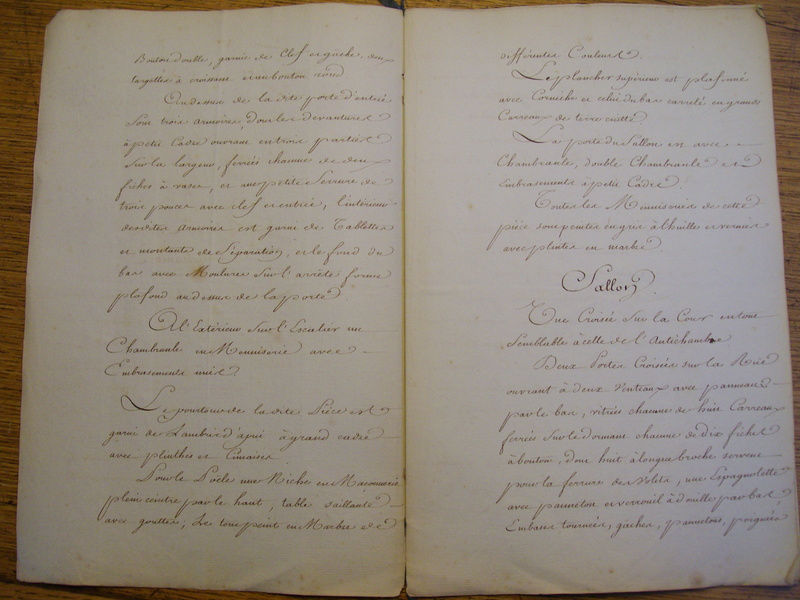 Bouton double, garnie de Clef et gache, deux
targettes à croissant et un bouton rond
Audessus de la dite porte d'entrée
Sont trois armoires, dont les devantures
à petit Cadre ouvrant en trois parties
Sur la largeur, ferrées chacune de deux
fiches à vases, et une petite Serrure de
trois pouces avec clef et entrée, l'intérieur
desdites armoires est garni de Tablettes
et montants de Séparation, et le fond du
bas avec Moulures Sur l'arrête forme
plafond audessus de la porte
A l'Extérieur Sur l'Escalier un
Chambranle en Menuiserie avec
Embrasements unies.
Le pourtour de la dite Pièce est
garni de Lambris d'apui à grand cadre
avec plinthes et Cimaises
Pour le Poële une Niche en Maconnerie
plein ceintre par le haut, table saillante
avec gouttes, Le tout peint en Marbre de
différentes Couleurs.
Le plancher supérieur est plafonné
avec Corniche et celui du bas carrelé en grands
Carreaux de terre cuitte
La porte du Sallon est avec
Chambranle, double Chambranle et
Embrasements à petit Cadre.
Toutes les Menuiseries de cette
pièce sont peintes en gris à l'huille et vernies
avec plintes en marbre.
Sallon.
Une Croisée Sur la Cour en tout
Semblable à celle de l'Antichambre
Deux Portes Croisées sur la Rue
ouvrant à deux Venteaux avec panneaux
par le bas, vitrées chacune de huit Carreaux
ferrées Sur le dormant chacune de dix fiches
à bouton, dont huit à longue broche servent
pour la ferrure des Volets, une Espagnolette
avec panneton et verrouil à douille par bas
Embases tournées, gaches, pannetons, poignées